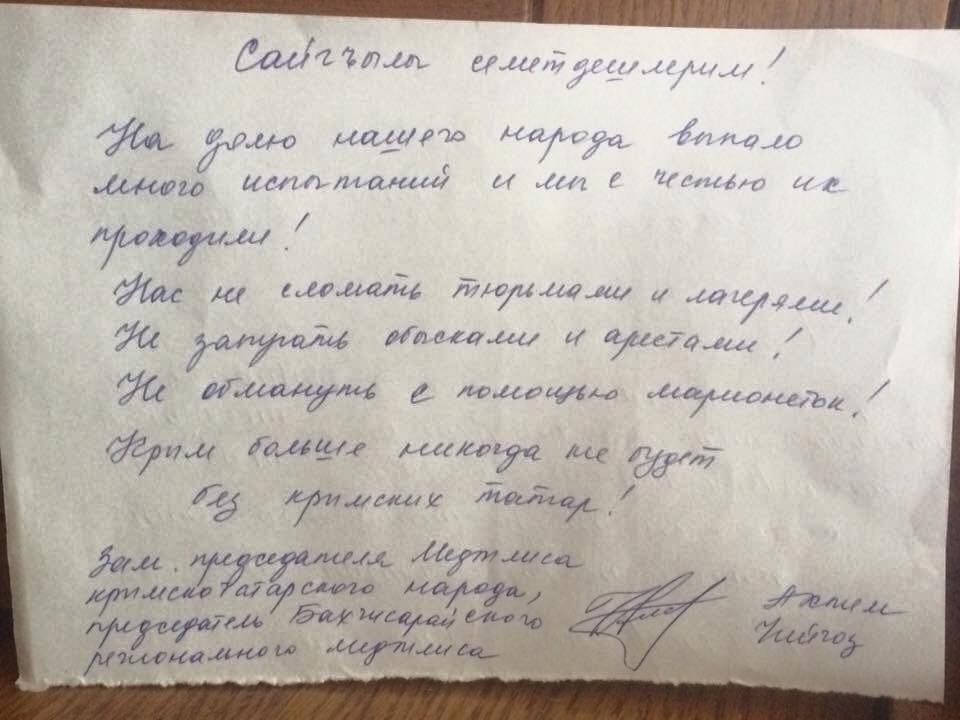 Сайгъылы семетдешлерим!
На долю нашего народа выпало
много испытаний и мы с честью их
проходили!
Нас не сломать тюрьмами и лагерями!
Не запугать обысками и арестами!
Не обмануть с помощью марионеток!
Крым больше никогда не будет
без крымских татар!
Зам. председателя Меджлиса
крымскотатарского народа,
председатель Бахчисарайского
регионального меджлиса
Ахтем
Чийгоз